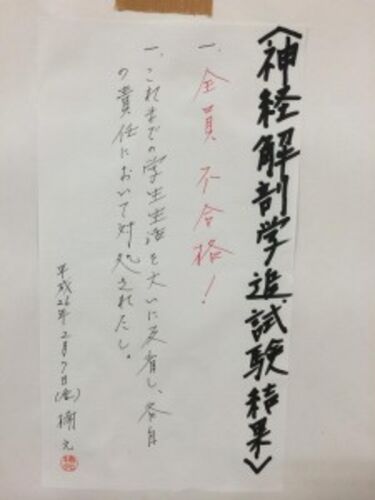 〈神経解剖学追試験結果〉
一、全員 不合格!
一、これまでの学生生活を大いに反省し、各自
の責任において対処されたし。
平成26年2月7日(金) 楠元